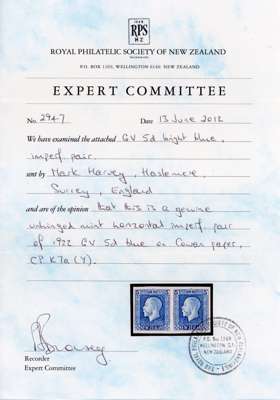 RPS
NZ
ROYAL PHILATELIC SOCIETY OF NEW ZEALAND
P.O. BOX 1269, WELLINGTON 6140, NEW ZEALAND
EXPERT COMMITTEE
No. 2947 Date 13 June 2012
We have examined the attached GV 5d bright blue,
imperf pair
sent by Mark Harvey, Haslemere,
Surrey, England
and are of the opinion that this is a genuine
unhinged mint horizontal imperf pair
of 1922 GV 5d blue on Cowan paper,
CP K7a (Y).
P.O. Box 1269
WELLINGTON
NEW ZEALAND
Recorder
Expert Committee